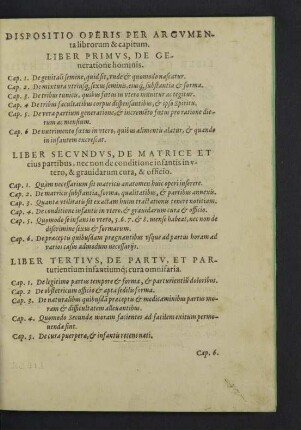 DISPOSITIO OPERIS PER ARGVMEN-
ta librorum & capitum.
LIBER PRIMVS, DE GE-
neratione hominis.
Cap. 1. De genitali semine, quid sit, unde & quomodo nascatur.
Cap. 2. De mixtura utriusq; sexus seminis, eiusq; substantia & forma.
Cap. 3. De tribus tunicis, quibus fœtus in utero munitur ac tegitur.
Cap. 4. De tribus facultatibus corpus dispensantibus, & ipso Spiritu.
Cap. 5. De vera partium generatione, & incremento fœtus pro ratione die-
rum ac mensium.
Cap. 6. De nutrimento fœtus in vtero, quibus alimentis alatur, & quando
in infantem excrescat.
LIBER SECVNDVS, DE MATRICE ET
eius partibus, nec non de conditione infantis in v-
tero, & grauidarum cura, & officio.
Cap. 1. Quàm necessarium sit matricis anatomen huic operi inserere.
Cap. 2. De matricis substantia, forma, qualitatibus, & partibus annexis.
Cap. 3. Quanta utilitatis sit exactam huius tractationis tenere notitiam.
Cap. 4. De conditione infantis in vtero, & grauidarum cura & officio.
Cap. 5. Quomodo se infans in vtero, 5. 6. 7. & 8. mense habeat, nec non de
discrimine sexus & formarum.
Cap. 6. De præceptis quibusdam prægnantibus vsque ad partus horam ad
varios casus admodum necessarijs.
LIBER TERTIVS, DE PARTV, ET PAR-
turientium infantiumq; cura omnifaria.
Cap. 1. De legitimo partus tempore & forma, & parturientis doloribus.
Cap. 2. De obstetricum officio & apta sedilis forma.
Cap. 3. De naturalibus quibusdã præceptis & medicaminibus partus mo-
ram & difficultatem alleuantibus.
Cap. 4. Quomodo Secundæ moram facientes ad facilem exitum permo-
uendæ sint.
Cap. 5. De cura puerperæ, & infantis recens nati.
Cap. 6.